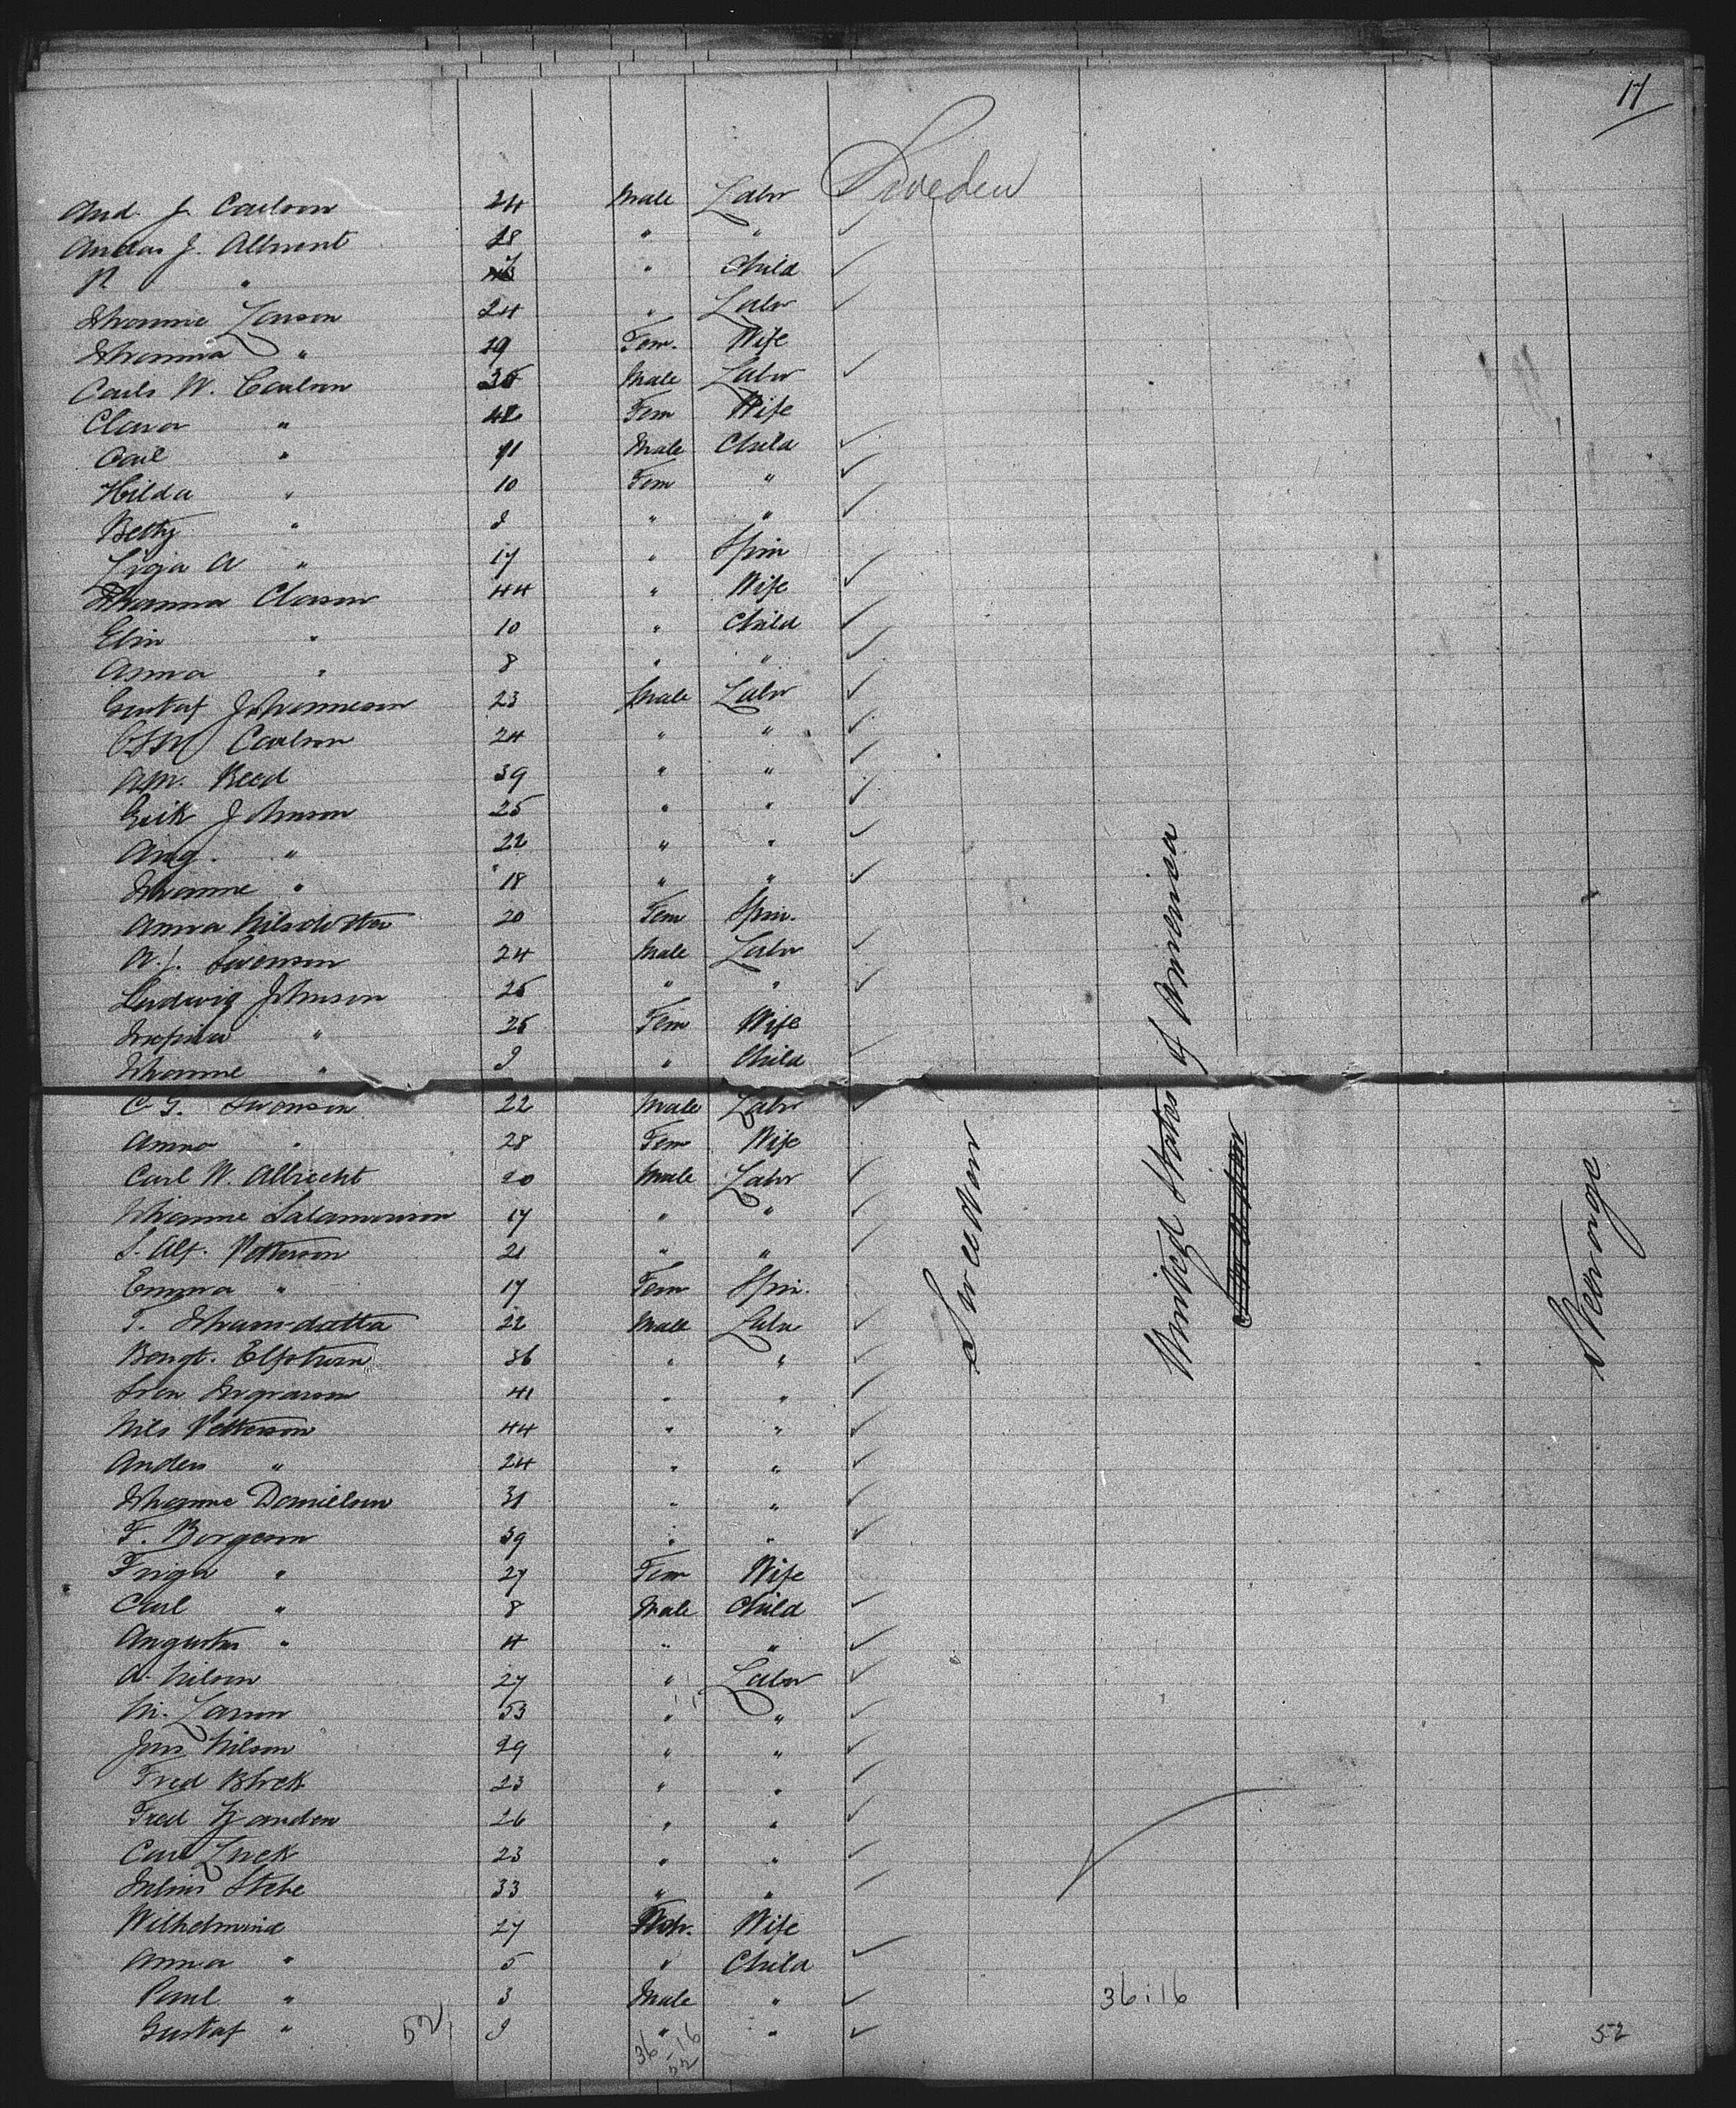 17
Sweden
And. J. Carlson 24 Male Labr
Andas J. Albrent 28 " "
N " " Child
Johanne Larson 24 " Labr
Johanna " 29 Fem. Wife
Carls W. Carlson 35 Male Labr
Clara " 42 Fem Wife
Carl " 11 Male Child
Hilda " 10 Fem "
Betty " 9 " "
" 17 " Spin
Johanna Clason 44 " Wife
Elin " 10 " Child
Anna " 8 " "
Gustaf Johanneson 23 Male Labr
Carlson 24 " "
Reed 39 " "
Erik Johnson 25 " "
Aug. " 22 " "
Johanne " 18 " "
Anna Nilsdotter 20 Fem Spin.
A. J. Swenson 24 Male Labr
Ludwig Johnson 25 " "
" 25 Fem Wife
Johanne " 9 " Child
C. G. Swenson 22 Male Labr
Anna " 28 Fem Wife
Carl W. Albrecht 20 Male Labr
Johanne Salamonson 17 " "
S. Alf. Petterson 21 " "
Emma " 17 Fem Spin.
T. 22 Male Labr
Bengt. 36 " "
Sven Ingvarson 41 " "
Nils Petterson 44 " "
Anders " 24 " "
Johanne Danielson 31 " "
F. Borgeson 39 " "
Friga " 27 Fem Wife
Carl " 8 Male Child
Augusta " 4 " "
A. Nilson 27 " Labr
M. Larson 53 " "
Jons Nilson 29 " "
Fred Block 23 " "
Fred 26 " "
Carl Zuck 23 " "
Julius Stehe 33 " "
Wilhelmine 27 Fem. Wife
Anna " 5 " Child
Paul " 3 Male "
Gustaf " 9 " "
Sweeden
United States of America
Steerage
52
36 16
52
36:16
52